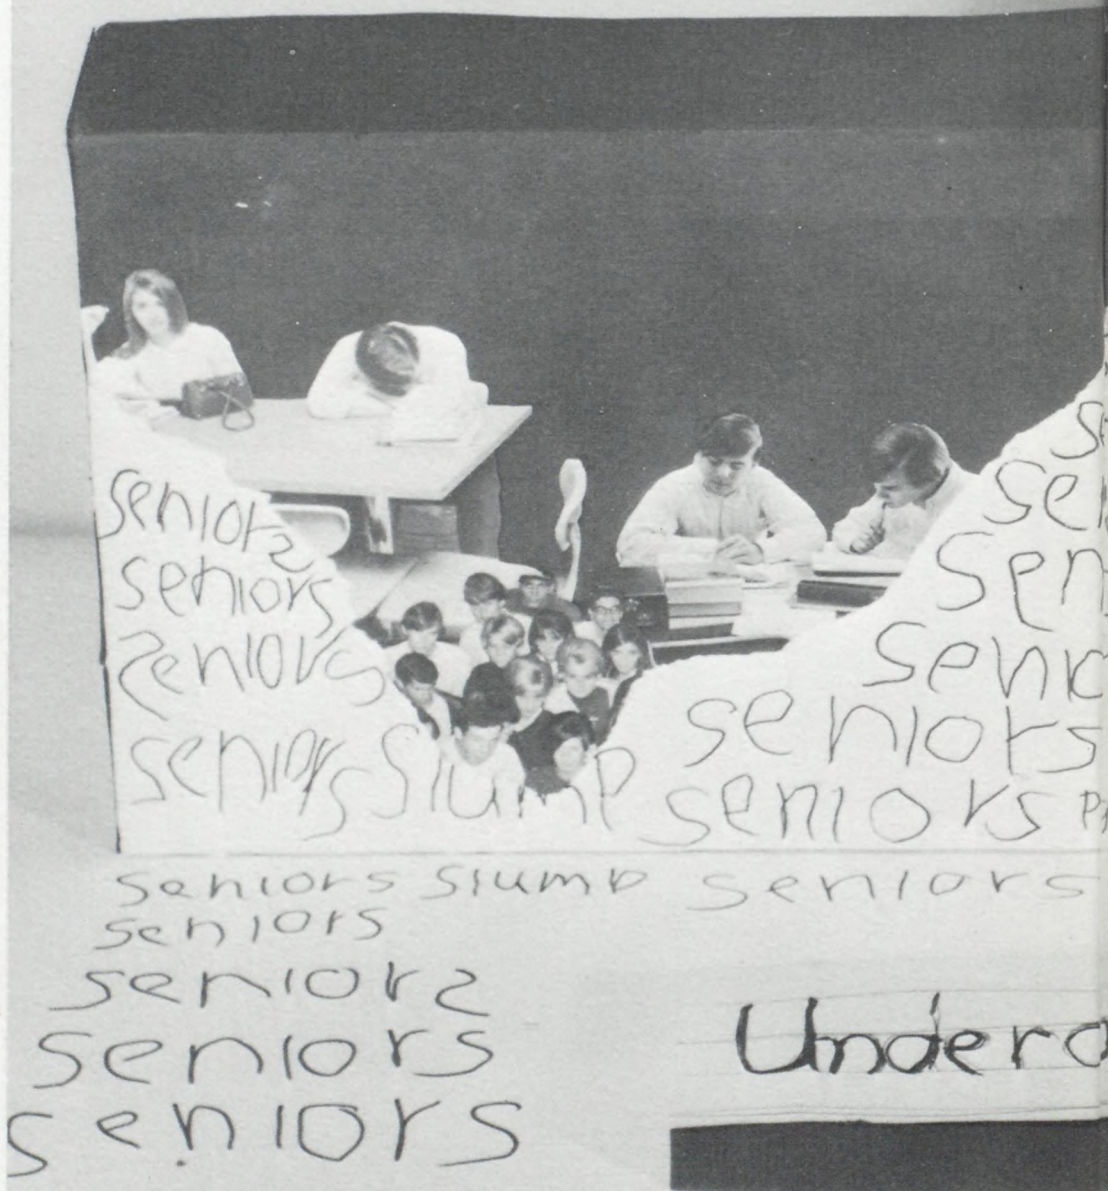 seniors
seniors
seniors
seniors slump
se
sen
senio
seniors
seniors
seniors slump seniors
seniors
seniors
seniors
seniors
Underc